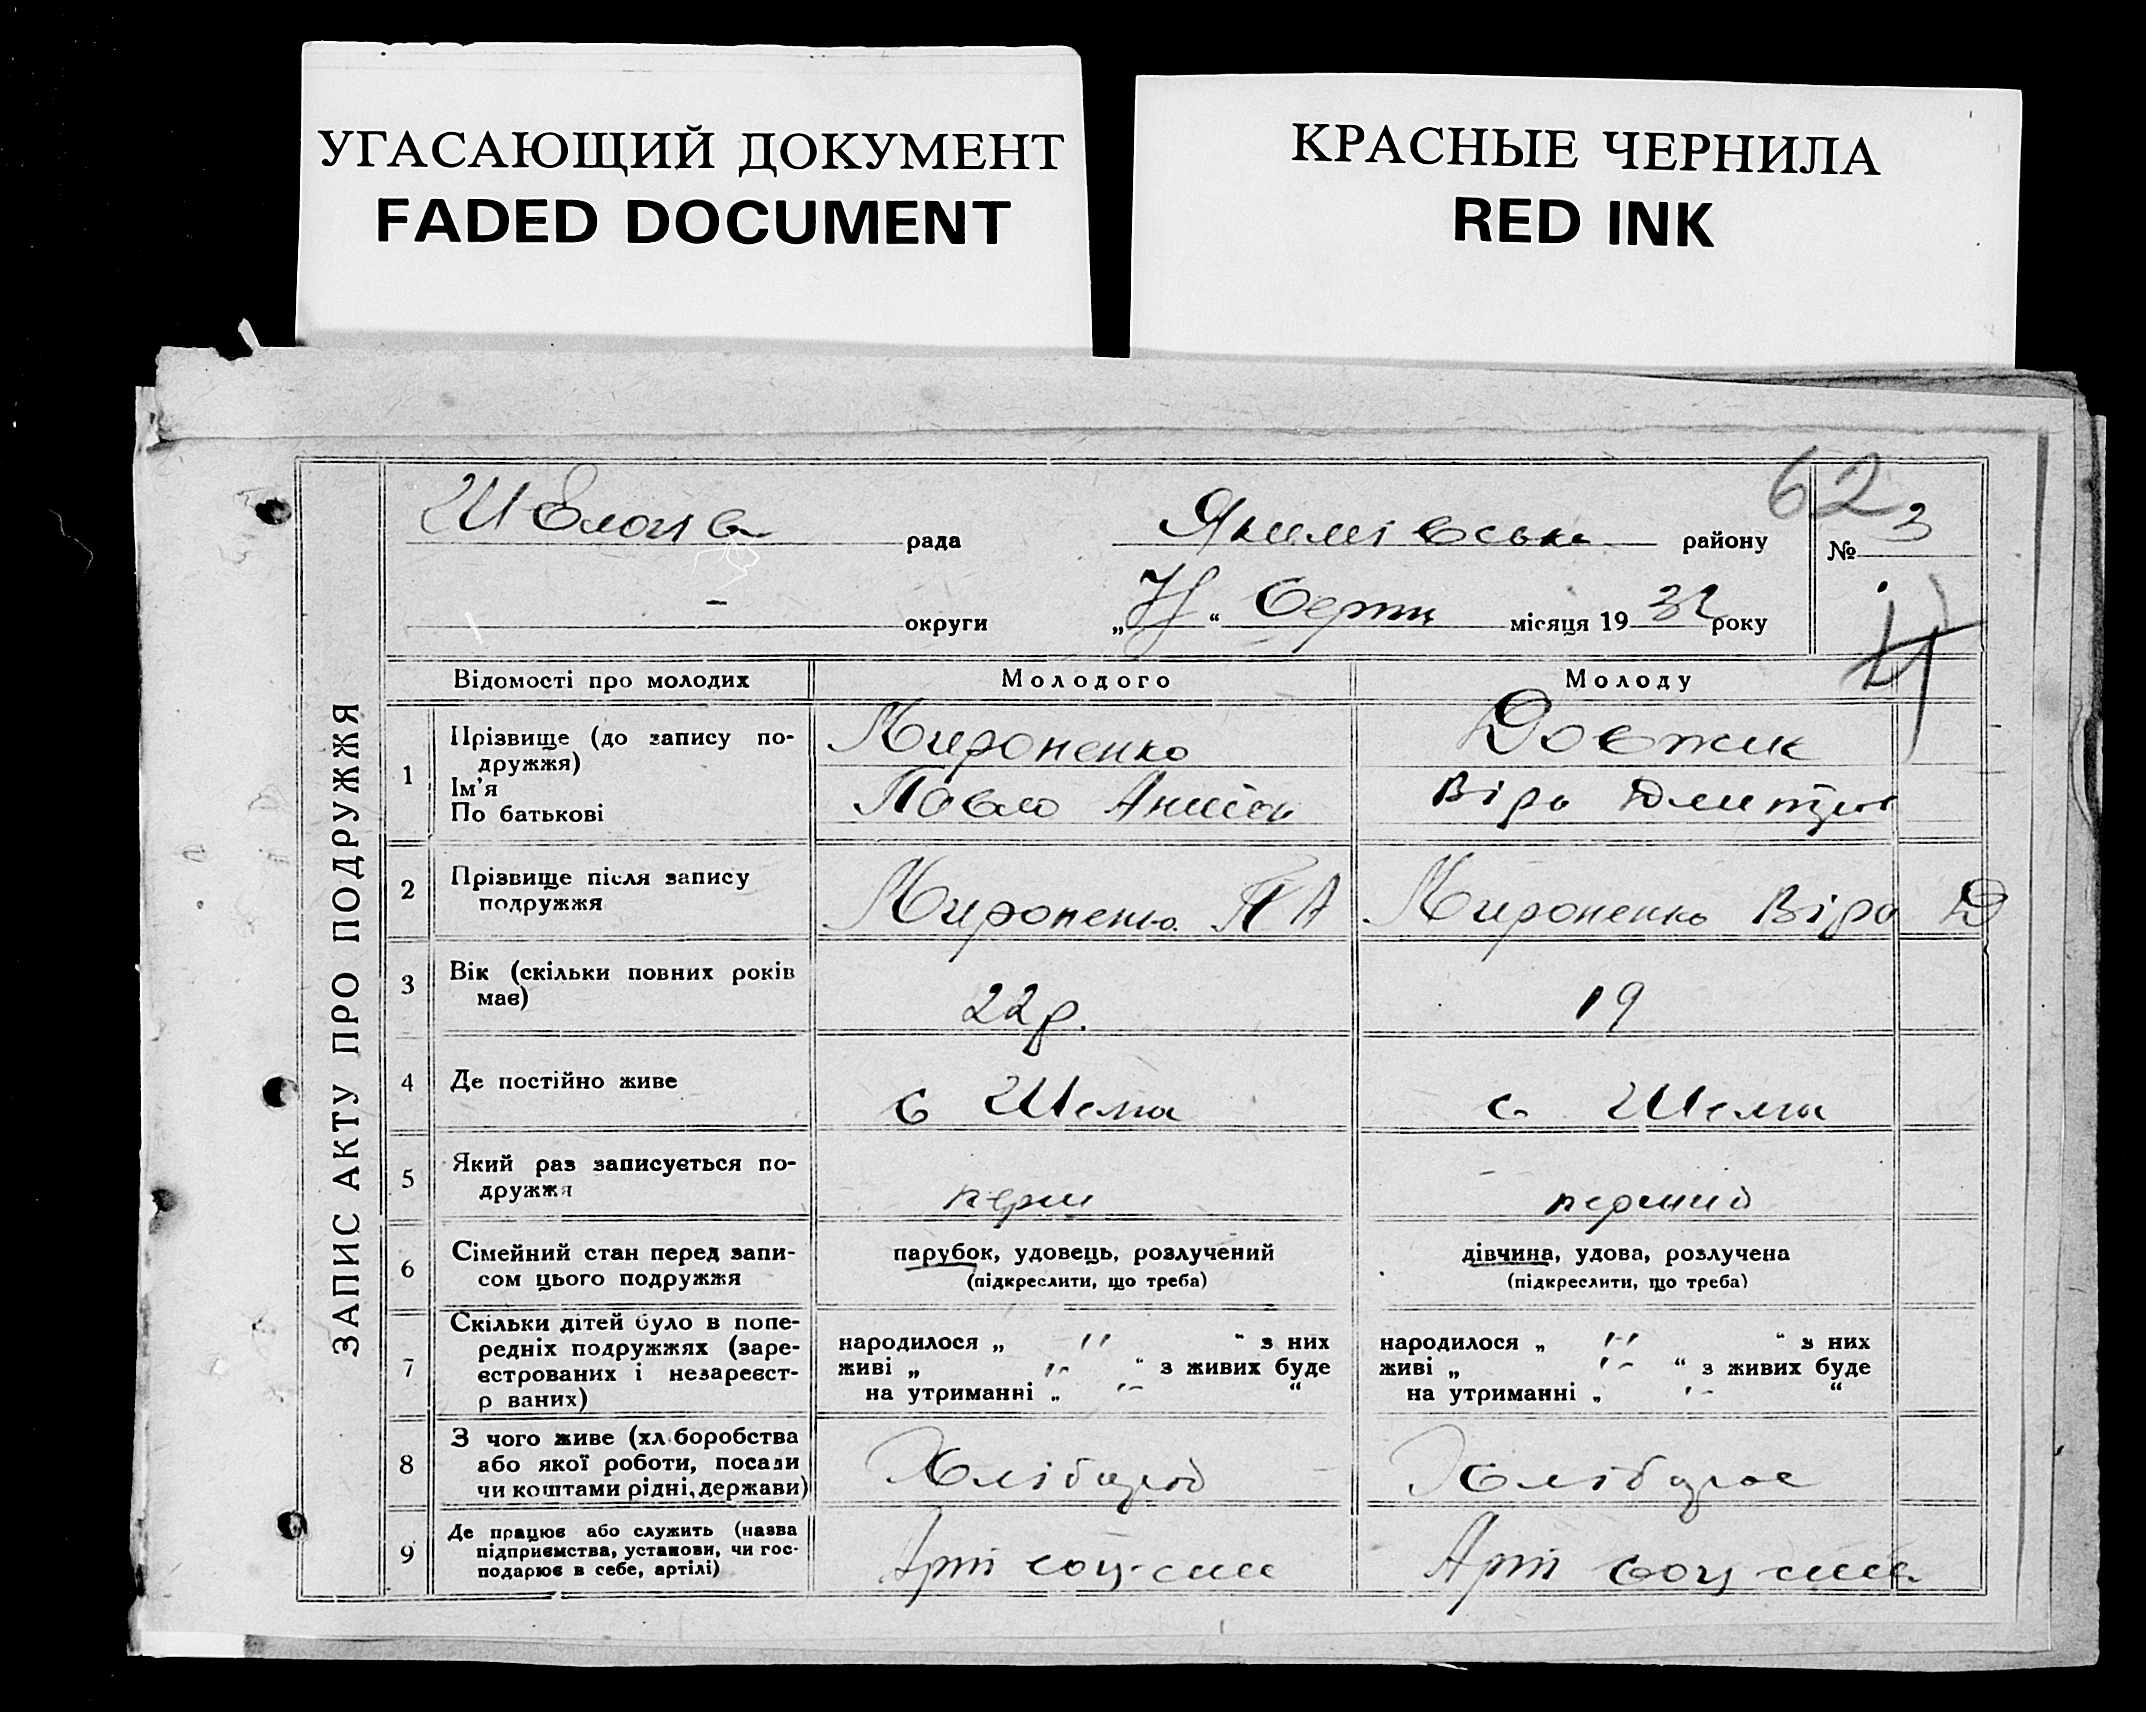 УГАСАЮЩИЙ ДОКУМЕНТ
FADED DOCUMENT
КРАСНЫЕ ЧЕРНИЛА
RED INK
62
рада Якимівська району № 3
округи „ “ місяця 1932 року
ЗАПИС АКТУ ПРО ПОДРУЖЖЯ
Відомості про молодих Молодого Молоду
1 Прізвище (до запису по-
дружжя)
Ім'я
По батькові
Мироненко
Павло
Довжик
Віра Дмитрів
2 Прізвище після запису
подружжя
Мироненко П А
Мироненко Віра Д
3 Вік (скільки повних років
має)
22 р.
19
4 Де постійно живе
с
с
5 Який раз записується по-
дружжя
перш
перший
6 Сімейний стан перед запи-
сом цього подружжя
парубок, удовець, розлучений
(підкреслити, що треба)
дівчина, удова, розлучена
(підкреслити, що треба)
7 Скільки дітей було в попе-
редніх подружжях (заре-
єстрованих і незареєст-
р ваних)
народилося „ '' “ з них
живі „ '' “ з живих буде
на утриманні „ '' “
народилося „ '' “ з них
живі „ '' “ з живих буде
на утриманні „ '' “
8 З чого живе (хл боробства
або якої роботи, посади
чи коштами рідні, держави)
Хлібороб
9 Де працює або служить (назва
підприємства, установи, чи гос-
подарює в себе, артілі)
Арт
Арт